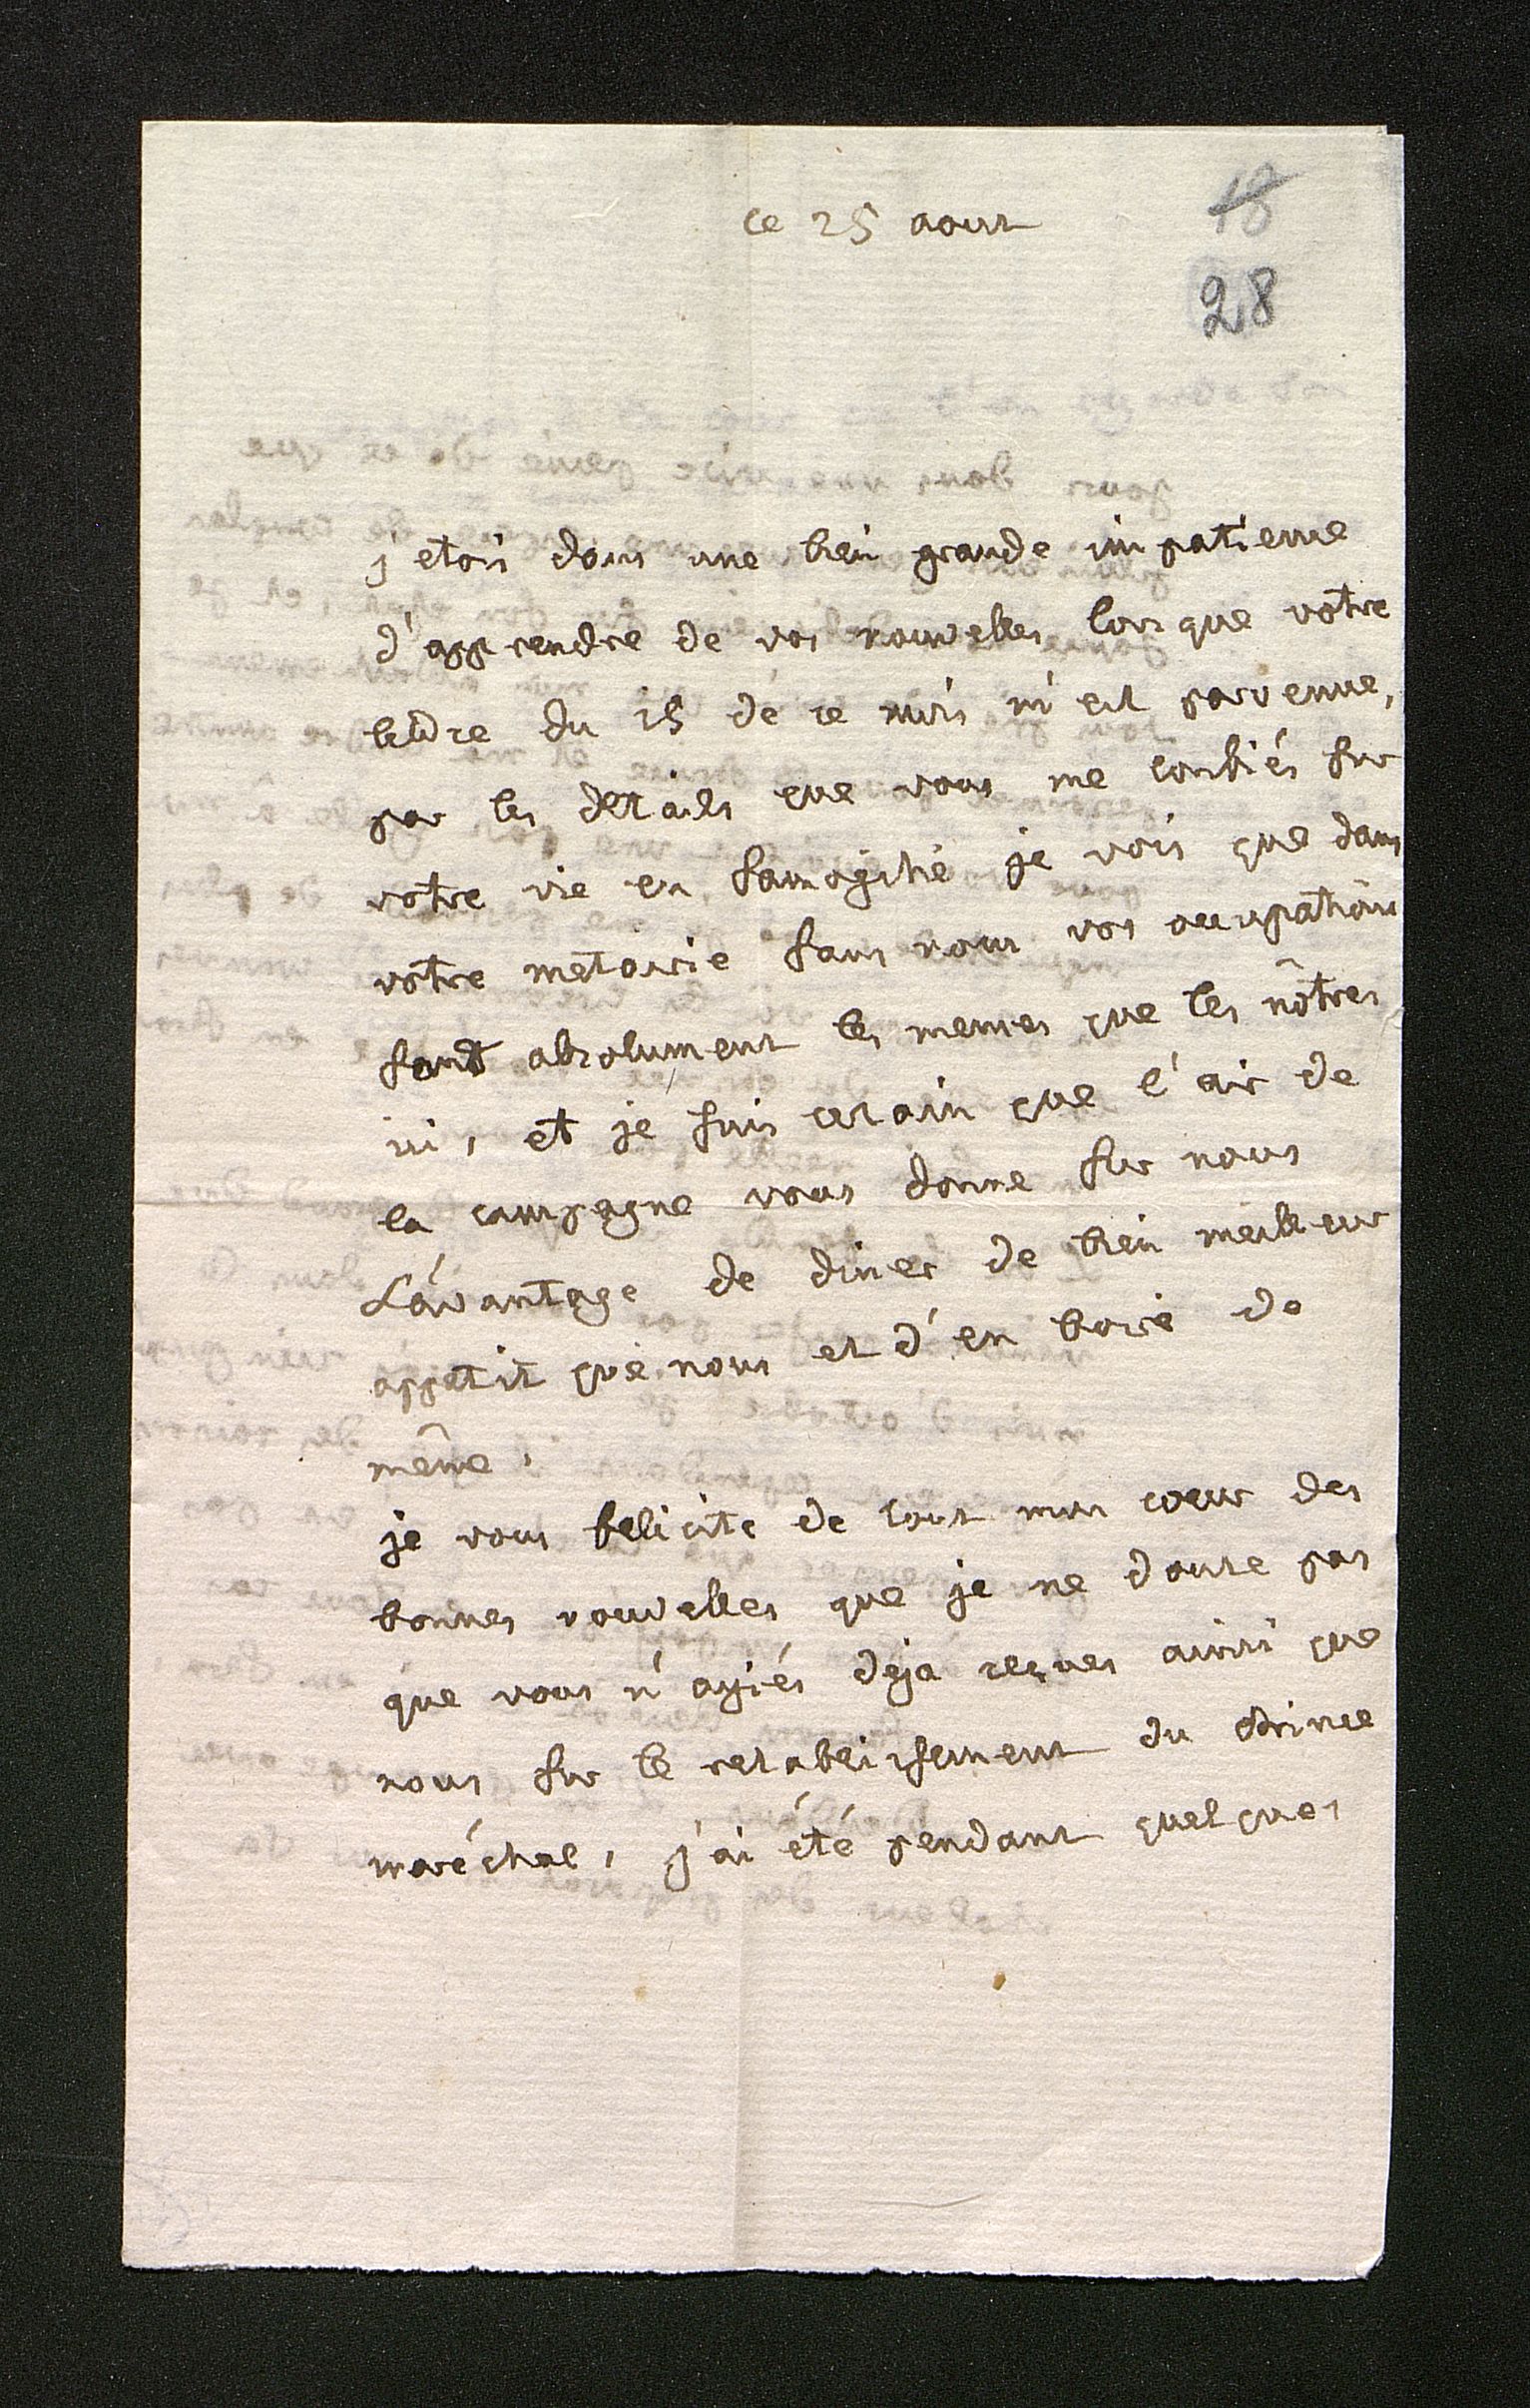 ce 25 aout
18
28
j'etois dans une bien grande impatience
d'apprendre de vos nouvelles lorsque votre
lettre du 15 de ce mois m'est parvenue,
par les details que vous me confiés sur
votre vie en Samogitie je vois que dans
votre metairie sans nous vos occupations
sont absolument les memes que les nôtres
ici, et je suis certain que l'air de
la campagne vous donne sur nous
L'avantage de diner de bien meilleur
appetit que nous et d'en boire de
même.
je vous felicite de tout mon coeur des
bonnes nouvelles que je ne doute pas
que vous n'ayiés deja reçues ainsi que
nous sur le retablissement du Prince
maréchal, j'ai été pendant quelques